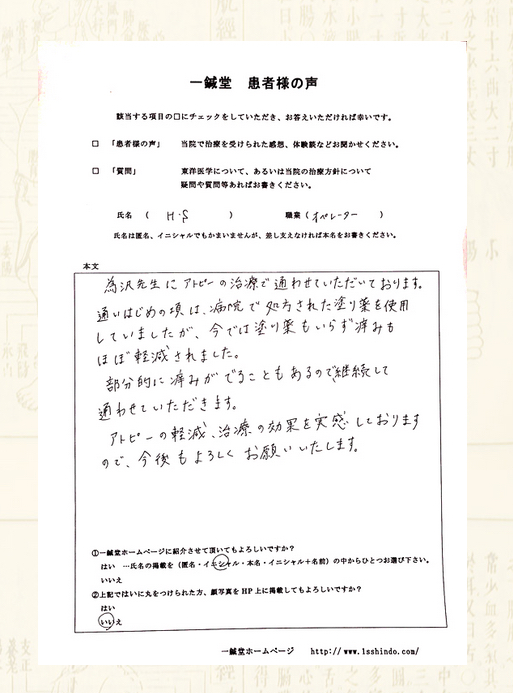 一鍼堂 患者様の声
該当する項目の□にチェックをしていただき、お答えいただければ幸いです。
□ 「患者様の声」 当院で治療を受けられた感想、体験談などお聞かせください。
□ 「質問」 東洋医学について、あるいは当院の治療方針について
疑問や質問等あればお書きください。
氏名 ( H.S ) 職業 ( オペレーター )
氏名は匿名、イニシャルでもかまいませんが、差し支えなければ本名をお書きください。
本文
為沢先生に アトピーの治療で通わせていただいております。
通いはじめの頃は、病院で処方された塗り薬を使用
していましたが、今では塗り薬もいらず痒みも
ほぼ軽減されました。
部分的に痒みがでることもあるので継続して
通わせていただきます。
アトピーの軽減、治療の効果を実感しております
ので、今後もよろしくお願いいたします。
①一鍼堂ホームページに紹介させて頂いてもよろしいですか?
はい …氏名の掲載を(匿名・イニシャル・本名・イニシャル+名前)の中からひとつお選び下さい。
いいえ
②上記ではいに丸をつけられた方、顔写真をHP上に掲載してもよろしいですか?
はい
いいえ
一鍼堂ホームページ http://www.1sshindo.com/